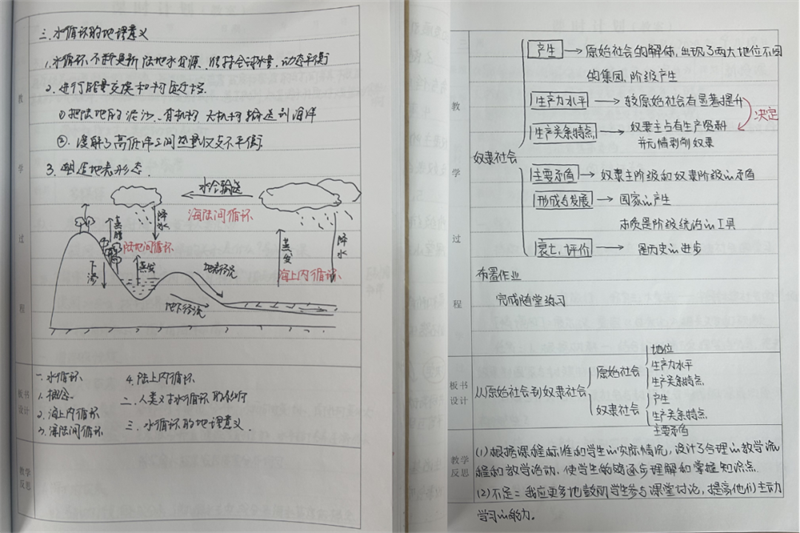 三、水循环的地理意义
1.水循环不断更新陆地水资源,维持全球水量动态平衡
2.进行能量交换和物质迁移
①把陆地的泥沙、有机物、无机物输送到海洋
②缓解了高低纬之间热量收支不平衡
3.塑造地表形态.
水汽输送
海陆间循环
降水
蒸腾
陆地内循环
蒸发
下渗
地表径流
地下径流
蒸发
海上内循环
降水
教
学
过
程
板书
设计
一.水循环
1.概念
2.海上内循环
3.海陆间循环
4.陆上内循环
二.人类对水循环的利用
三.水循环的地理意义.
教学
反思
奴隶社会
产生
原始社会的解体,出现了两大地位不同
的集团,阶级产生
生产力水平
较原始社会有显著提升
决定
生产关系特点
奴隶主占有生产资料
并无情剥削奴隶
主要矛盾
奴隶主阶级和奴隶阶级的矛盾
形成与发展
国家的产生
本质是阶级统治的工具
衰亡、评价
是历史的进步
布置作业
完成随堂练习
教
学
过
程
板书
设计
从原始社会到奴隶社会
原始社会
地位
生产力水平
生产关系特点
奴隶社会
产生
生产关系特点
主要矛盾
教学
反思
(1)根据课程标准和学生的实际情况,设计了合理的教学流
程和教学活动,使学生能够逐步理解和掌握知识点.
(2)不足:我应更多地鼓励学生参与课堂讨论,提高他们主动
学习的能力。